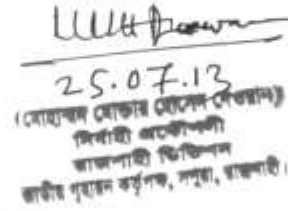 25.07.13
(মোহাম্মদ মোক্তার হোসেন দেওয়ান)
নির্বাহী প্রকৌশলী
রাজশাহী ডিভিশন
জাতীয় গৃহায়ন কর্তৃপক্ষ, সপুরা, রাজশাহী।